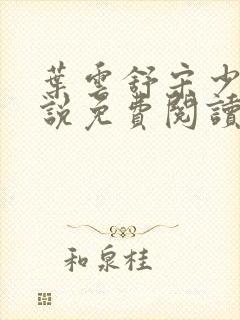 葉雲舒宋少
說免費閱讀
和泉桂